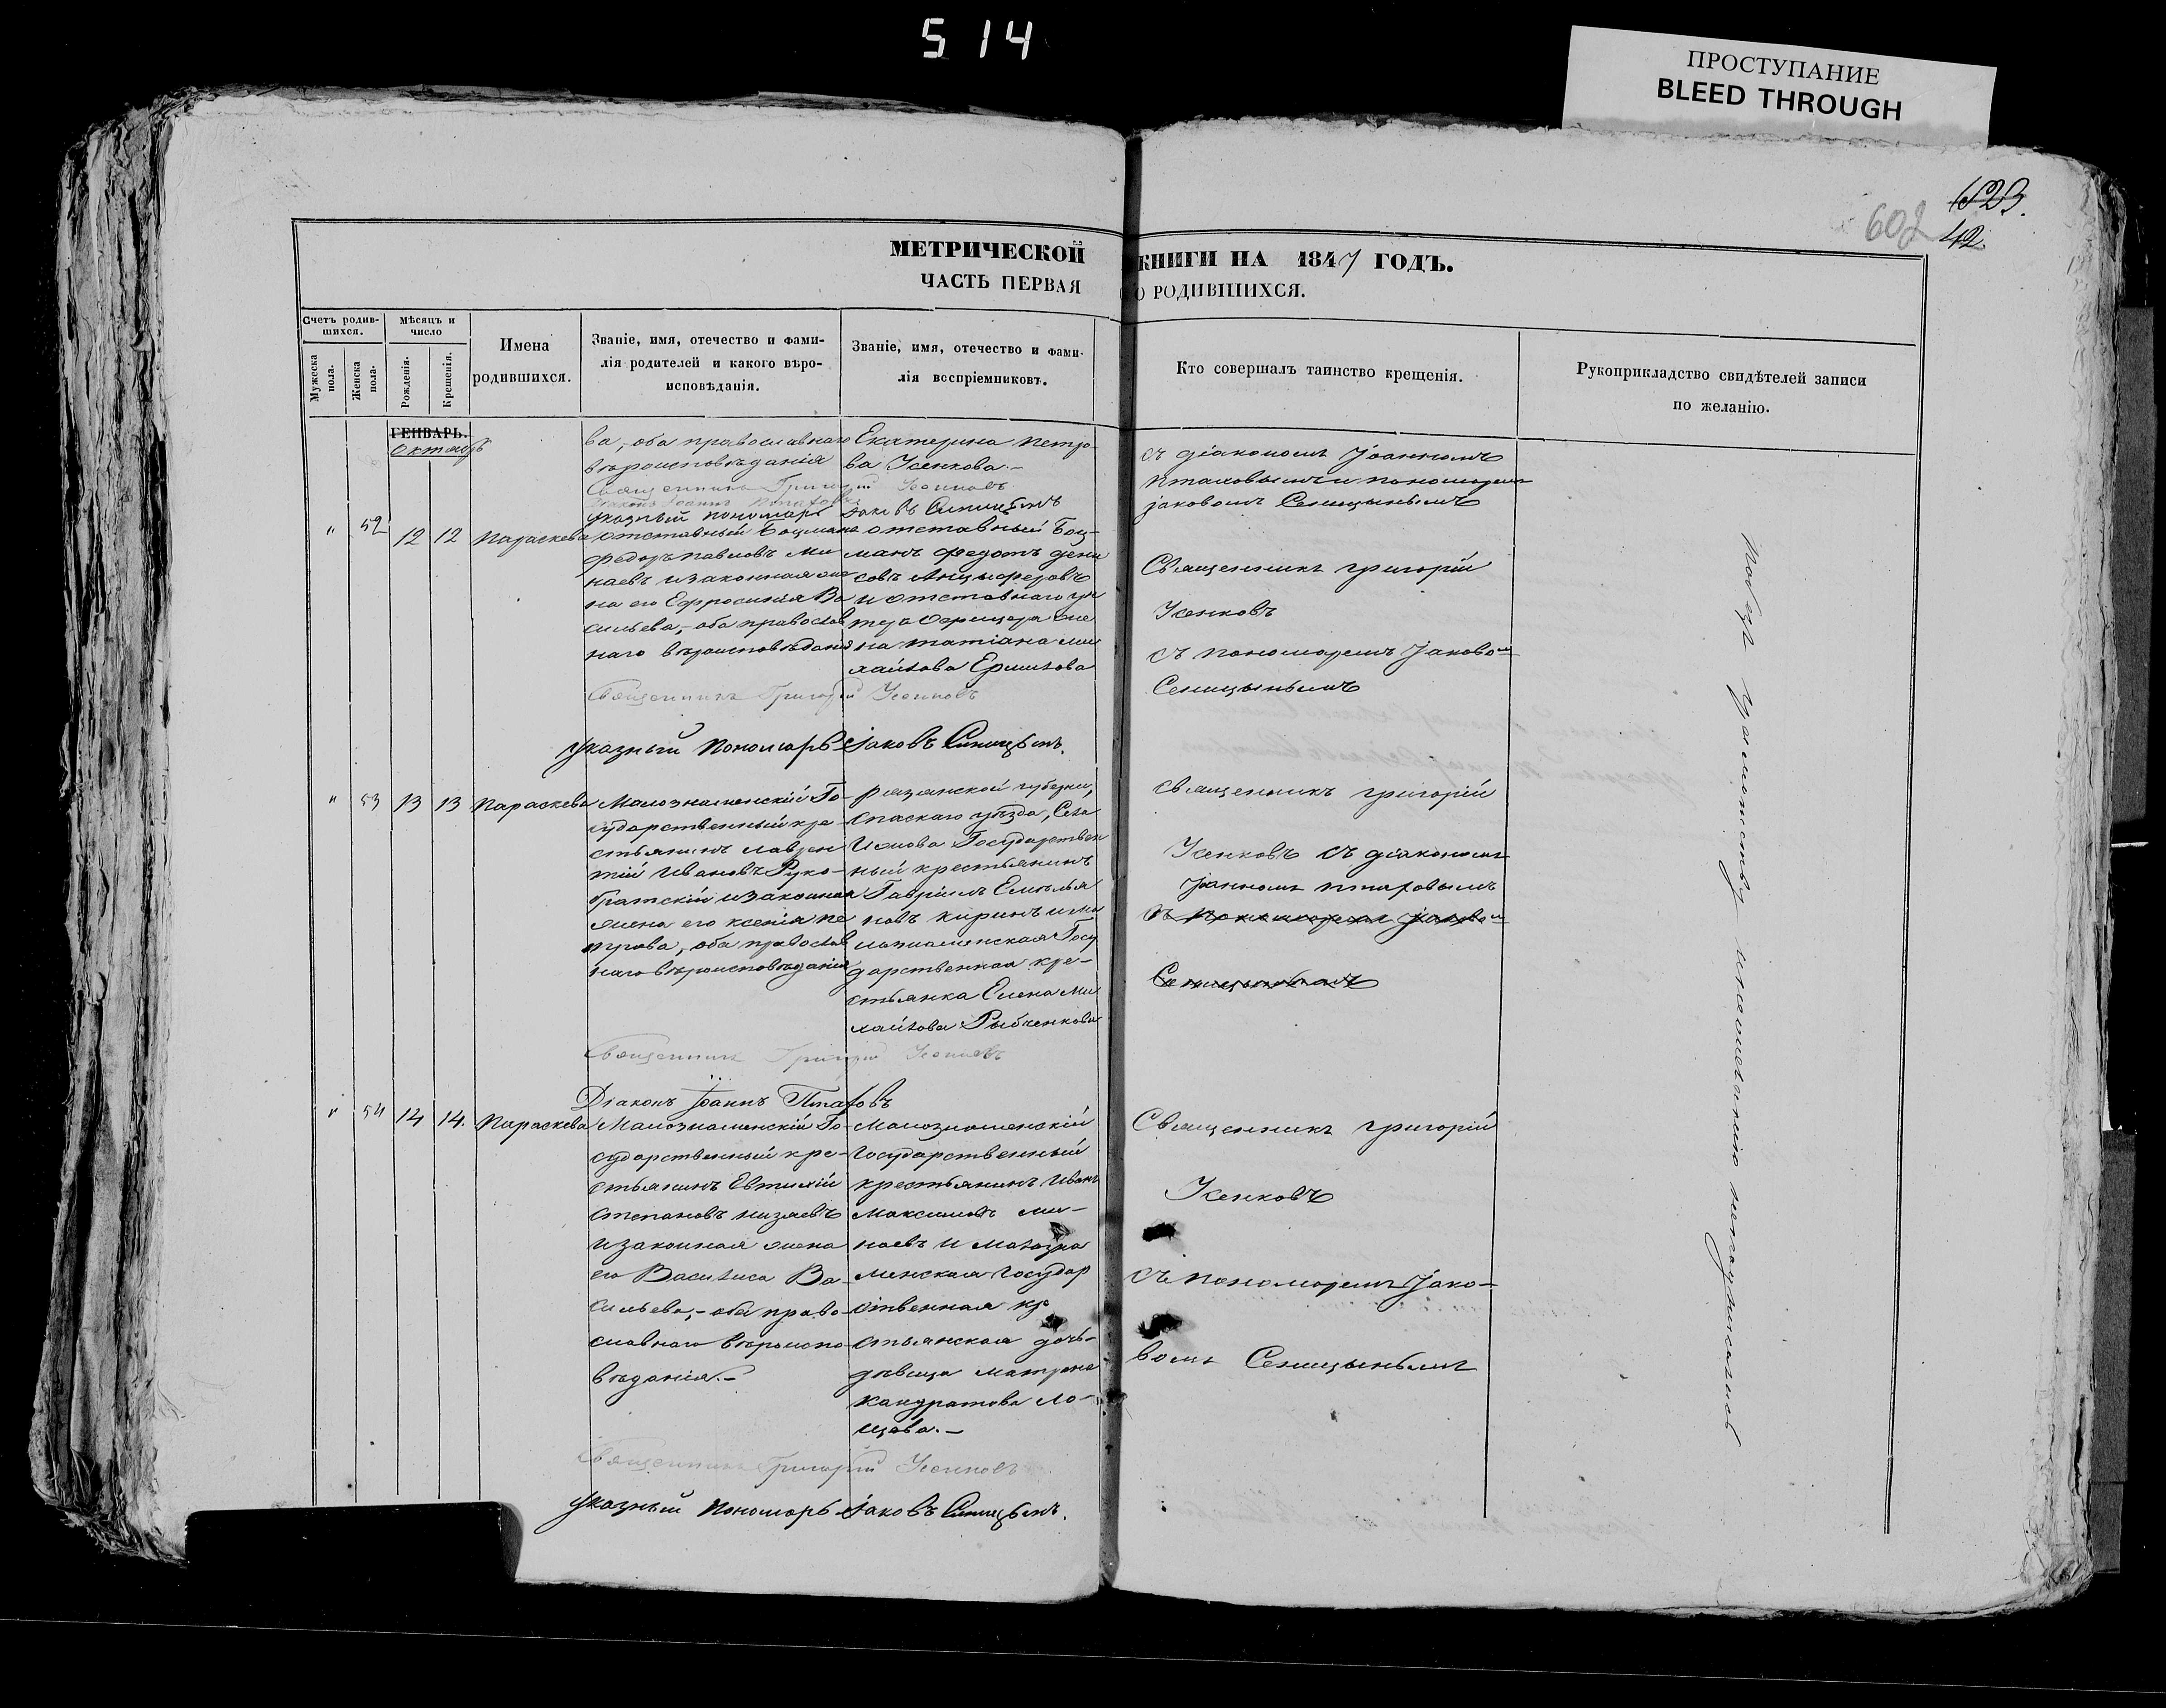 514
ПРОСТУПАНИЕ
BLEED THROUGH
602
623.
42.
МЕТРИЧЕСКОЙ КНИГИ НА 1847 ГОДЪ.
ЧАСТЬ ПЕРВАЯ О РОДИВШИХСЯ.
Счетъ родив-
шихся.
Мужеска
пола.
Женска
пола.
Мѣсяцъ и
число
Рожденія.
Крещенія.
Имена
родившихся.
Званіе, имя, отечество и фами-
лія родителей и какого вѣро-
исповѣданія.
Званіе, имя, отечество и фами-
лія воспріемниковъ.
Кто совершалъ таинство крещенія.
Рукоприкладство свидѣтелей записи
по желанію.
ГЕНВАРЬ.
Октябрь
ва, оба православнаго
вѣроисповѣданія
Екатерина Петро
ва Усенкова.
съ діакономъ Іоанномъ
Птаховымъ и пономаремъ
Іаковомъ Сеницынымъ
Священникъ Григорій Усенковъ
Діаконъ Іоаннъ Птаховъ
Указный пономарь Іаковъ Синицынъ
" 52 12 12 Параскева
отставный Боцманъ
Федоръ Павловъ Ми
наевъ и законная же
на его Ефросинія Ва
сильева, оба православ
наго вѣроисповѣданія
отставный Боц-
манъ Федотъ Дени
совъ Анцыферовъ
и отставнаго ун
теръ Офицера же
на Татіана Ми
хайлова Ершкова
Священникъ Григорій
Усенковъ
съ пономаремъ Іаковом
Сеницынымъ
Священникъ Григорій Усенковъ
Указный Пономарь Іаковъ Синицынъ.
" 53 13 13 Параскева
Малознаменскій Го-
сударственный кре-
стьянинъ Лаврен
тій Ивановъ Руко-
братскій и законная
жена его Ксенія Пе
трова, оба православ
наго вѣроисповѣданія
Рязанской губерніи,
Спаскаго уѣзда, Села
Ижова Государствен
ный крестьянинъ
Гавріилъ Емелья
новъ Киринъ и Ма
лознаменская Госу
дарственная кре-
стьянка Елена Ми
хайлова Рыбченкова
Священникъ Григорій
Усенковъ съ діакономъ
Іоанномъ Птаховымъ
съ пономаремъ Іаковом
Сеницынымъ
Священникъ Григорій Усенковъ
Діаконъ Іоаннъ Птаховъ
" 54 14 14. Параскева
Малознаменскій Го-
сударственный кре-
стьянинъ Евтихій
Степановъ Низяевъ
и законная жена
его Василиса Ва-
сильева, оба право-
славнаго вѣроиспо
вѣданія.
Малознаменскій
Государственный
крестьянинъ Иванъ
Максимовъ Ми-
наевъ и Малозна
менская Государ
ственная кр
стьянская дочь
дѣвица Матрена
Кандратова Ло-
щева.
Священникъ Григорій
Усенковъ
съ пономаремъ Іако-
вомъ Сеницынымъ
Священникъ Григорій Усенковъ
Указный Пономарь Іаковъ Синицынъ.